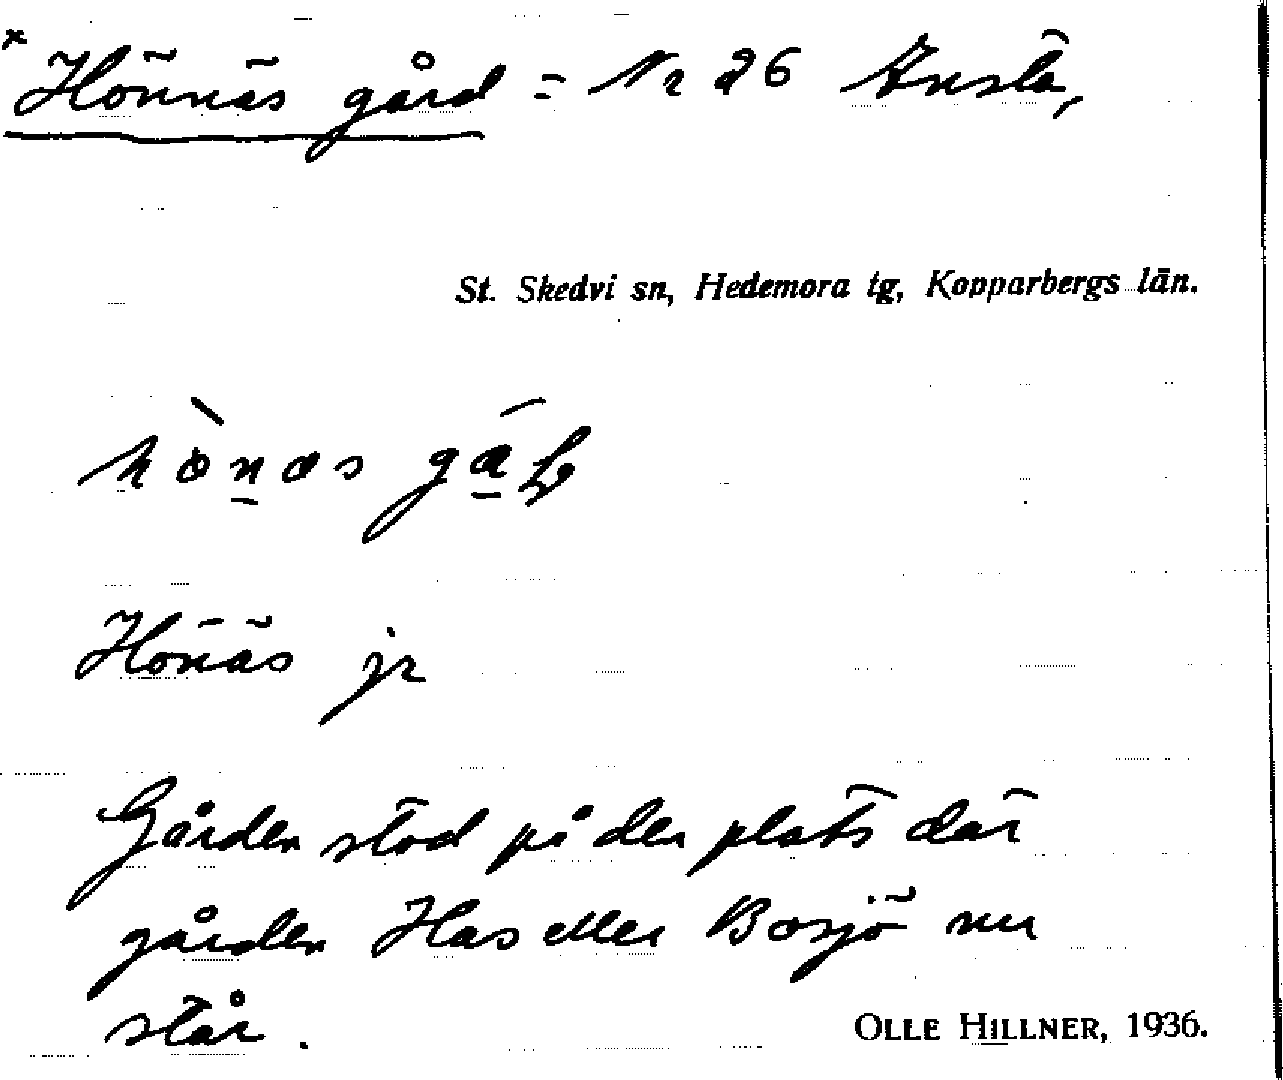 * Hönnäs gård = Nr 26 Ansta,
St. Skedvi sn, Hedemora tg, Kopparbergs län.
Hönäs jr
Gården stod på den plats där
gården Has eller Bosjö nu
står.
OLLE HILLNER, 1936.